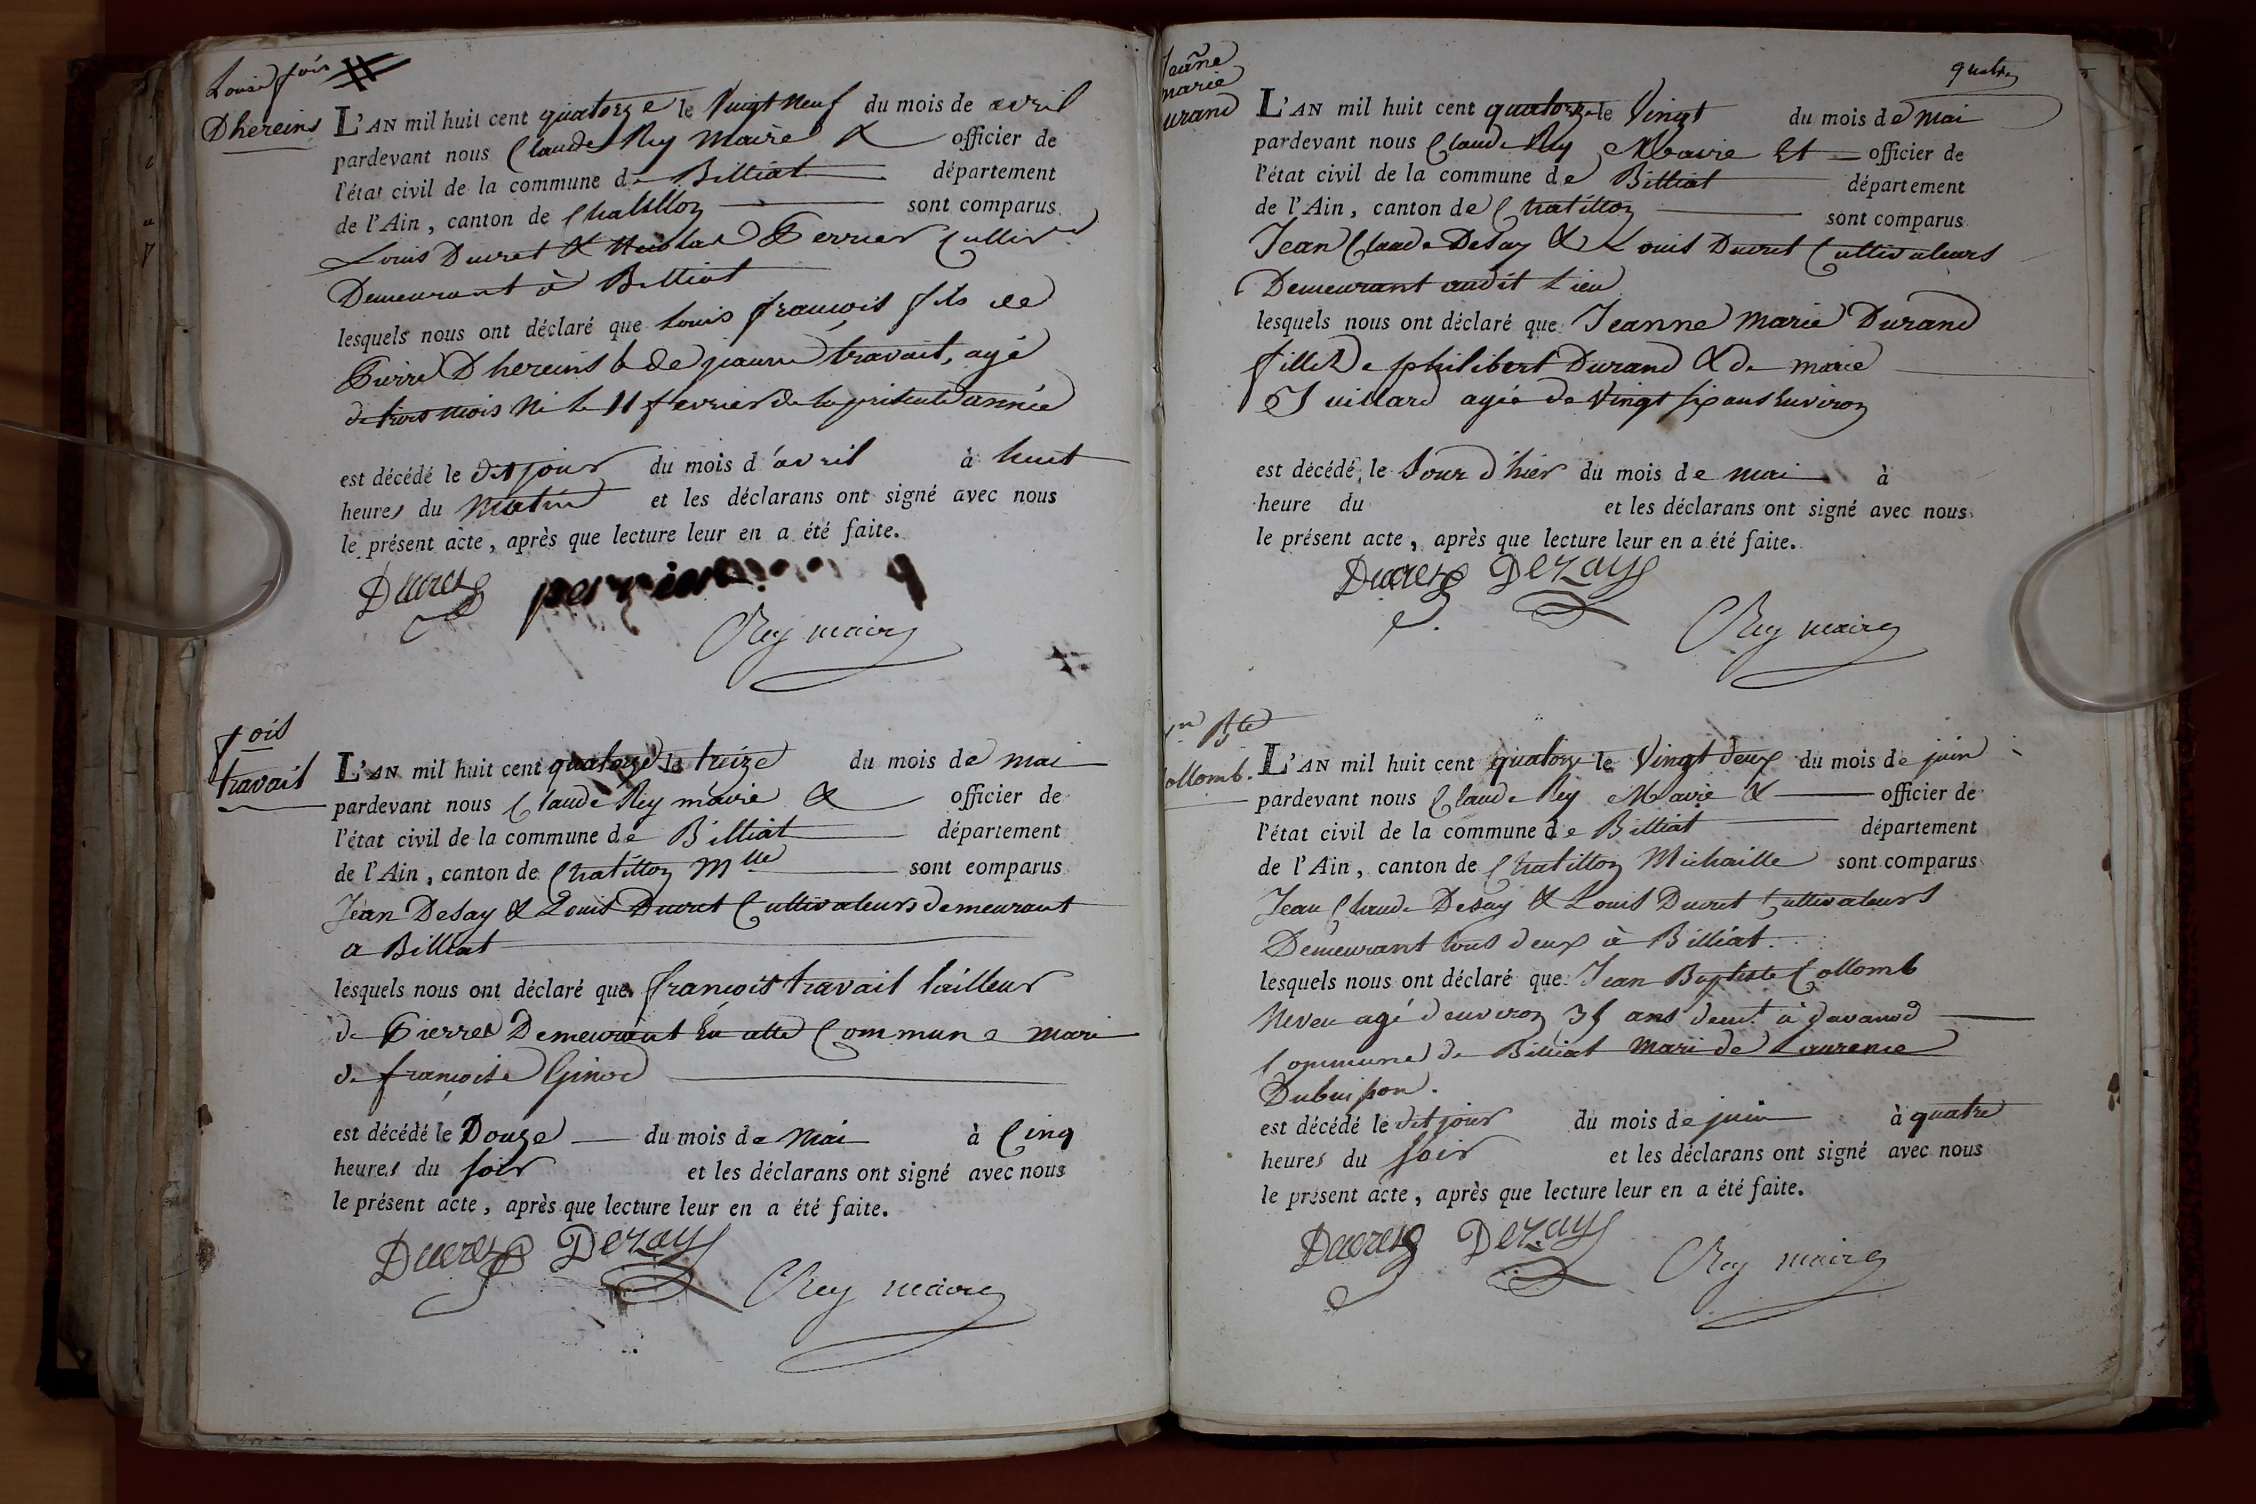 Louis fois
Dhereins
L'AN mil huit cent quatorze le Vingt neuf du mois de avril
pardevant nous Claude Rey Maire & officier de
l'état civil de la commune de Billiat département
de l'Ain, canton de Chatillon sont comparus
Louis Ducret & Nicolas Perrier Cultivr
Demeurant à Billiat
lesquels nous ont déclaré que Louis françois fils de
Pierre Dhereins & de jeanne travait, agé
de trois mois Né le 11 fevrier de la presente année
est décédé le dit jour du mois d'avril à huit
heures du Matin et les déclarans ont signé avec nous
le présent acte, après que lecture leur en a été faite.
Ducret
Rey maire
fois
travait
L'AN mil huit cent quatorze le treize du mois de mai
pardevant nous Claude Rey maire & officier de
l'état civil de la commune de Billiat département
de l'Ain, canton de Chatillon Mlle sont comparus
Jean Desay & Louis Ducret Cultivateurs demeurant
a Billiat
lesquels nous ont déclaré que françois travait tailleur
de Pierres Demeurant en cette Commune mari
de françoise Ginod
est décédé le Douze du mois de Mai à Cinq
heures du soir et les déclarans ont signé avec nous
le présent acte, après que lecture leur en a été faite.
Ducret Dezay
Rey maire
quatre
Jeanne
marie
urand
L'AN mil huit cent quatorze le Vingt du mois de mai
pardevant nous Claude Rey Maire Et officier de
l'état civil de la commune de Billiat département
de l'Ain, canton de Chatillon sont comparus
Jean Claude Desay & Louis Ducret Cultivateurs
Demeurant audit Lieu
lesquels nous ont déclaré que Jeanne Marie Durand
fille De philibert Durand & de marie
Juillard agée de Vingt six ans Environ
est décédé, le Jour d'hier du mois de mai à
heure du et les déclarans ont signé avec nous
le présent acte, après que lecture leur en a été faite.
Ducret Dezay
Rey maire
Jn Bte
ollomb.
L'AN mil huit cent quatorze le Vingt deux du mois de juin
pardevant nous Claude Rey Maire & officier de
l'état civil de la commune de Billiat département
de l'Ain, canton de Chatillon Michaille sont comparus
Jean Claude Desay & Louis Ducret Cultivateurs
Demeurant tous deux à Billiat.
lesquels nous ont déclaré que Jean Baptiste Collomb
Neveu agé d'environ 35 ans demt. à davanod
Commune de Billiat Mari de Laurence
Dubuisson.
est décédé le dit jour du mois de juin à quatre
heures du soir et les déclarans ont signé avec nous
le présent acte, après que lecture leur en a été faite.
Ducret Dezay
Rey maire